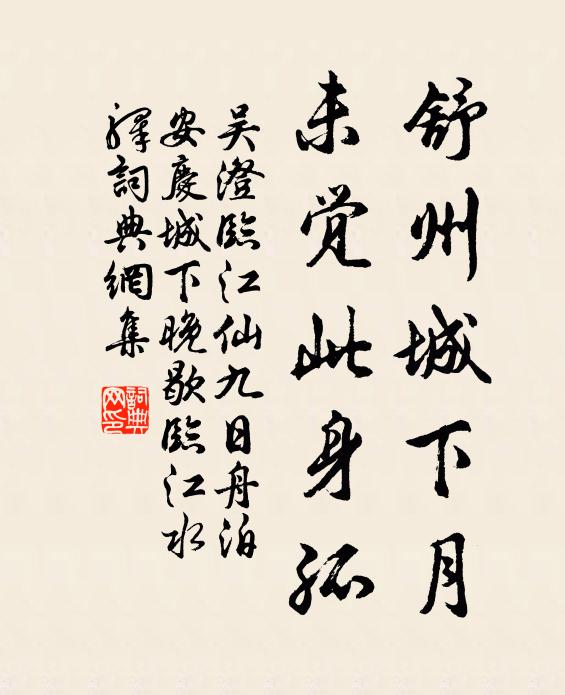 舒州城下月
未觉此身孤
吴澄臨江仙九日舟泊
安慶城下晚歇臨江水
驛詞典網集
詞典网印